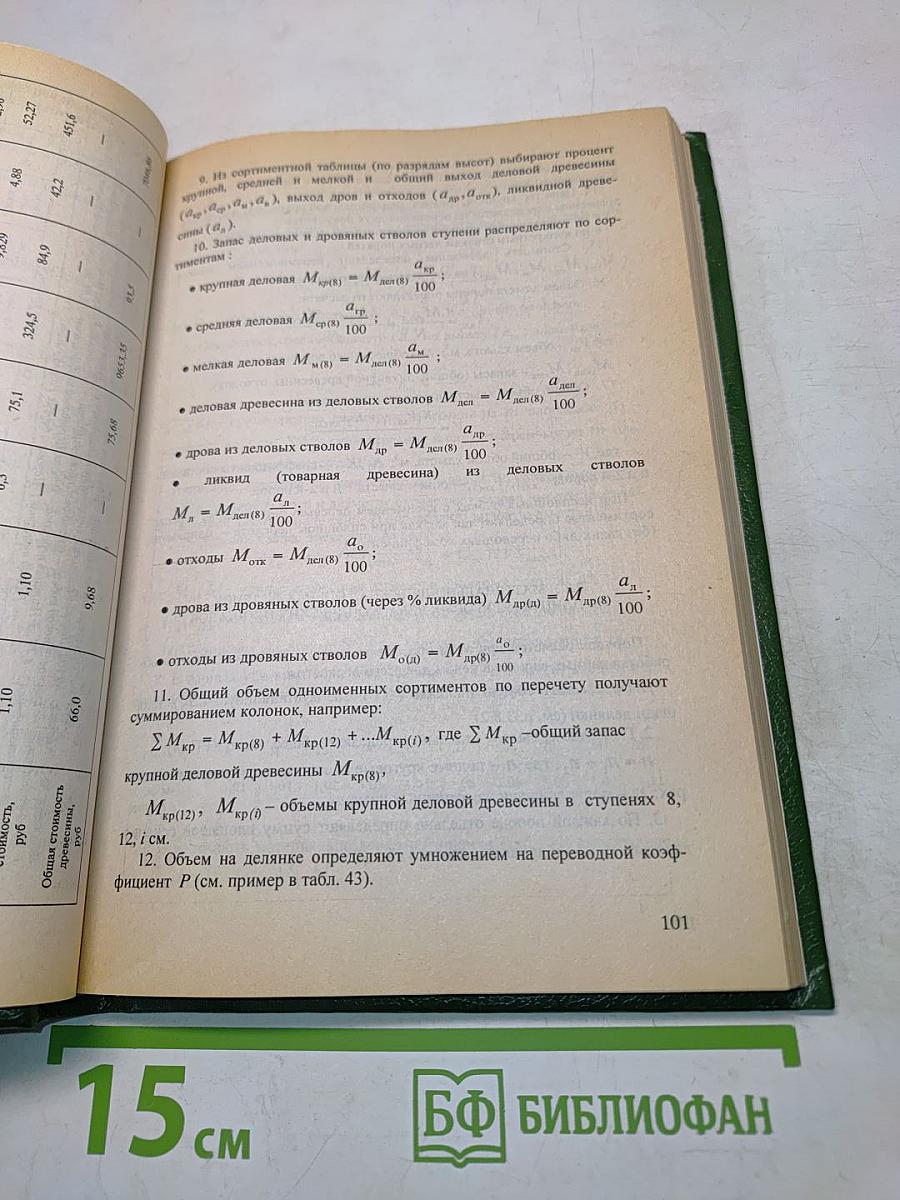 2,96
52,27
451,6
—
7048,80
4,88
42,2
—
—
9,829
84,9
—
93,5
324,5
—
9653,35
75,1
—
75,68
6,3
—
—
1,10
9,68
1,10
66,0
стоимость,
руб
Общая стоимость
древесины,
руб
9. Из сортиментной таблицы (по разрядам высот) выбирают процент
крупной, средней и мелкой и общий выход деловой древесины
(aкр, aср, aм, aв), выход дров и отходов (aдр, aотк), ликвидной древе-
сины (aл).
10. Запас деловых и дровяных стволов ступени распределяют по сор-
тиментам :
• крупная деловая Mкр(8) = Mдел(8) aкр/100;
• средняя деловая Mср(8) aгр/100 ;
• мелкая деловая Mм(8) = Mдел(8) aм/100 ;
• деловая древесина из деловых стволов Mдел = Mдел(8) aдел/100 ;
• дрова из деловых стволов Mдр = Mдел(8) aдр/100;
• ликвид (товарная древесина) из деловых стволов
Mл = Mдел(8) aл/100;
• отходы Mотк = Mдел(8) aо/100;
• дрова из дровяных стволов (через % ликвида) Mдр(д) = Mдр(8) aл/100;
• отходы из дровяных стволов Mо(д) = Mдр(8) aо/100;
11. Общий объем одноименных сортиментов по перечету получают
суммированием колонок, например:
∑ Mкр = Mкр(8) + Mкр(12) + ...Mкр(i), где ∑ Mкр –общий запас
крупной деловой древесины Mкр(8),
Mкр(12), Mкр(i) – объемы крупной деловой древесины в ступенях 8,
12, i см.
12. Объем на делянке определяют умножением на переводной коэф-
фициент P (см. пример в табл. 43).
101
15 см
БФ БИБЛИОФАН